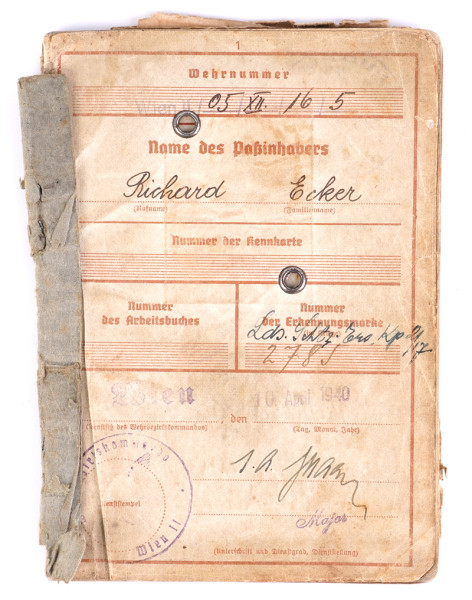 1
Wehrnummer
Wien II 05 XII. 16 5
Name des Paßinhabers
Richard Ecker
(Rufname) (Familienname)
Nummer der Kennkarte
Nummer des Arbeitsbuches
Nummer der Erkennungsmarke
Lds. Schtz. Ers. Kp.
Wien 10. April 1940
, den
(Tag, Monat, Jahr)
Wien II
Dienststempel
I.A.
Major
(Unterschrift und Dienstgrad, Dienststellung)